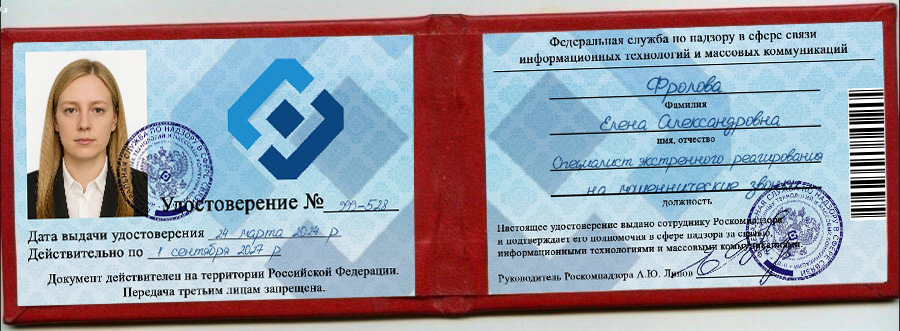 Удостоверение № 999-528
Дата выдачи удостоверения 24 марта 2024 г
Действительно по 1 сентября 2027 г
Документ действителен на территории Российской Федерации.
Передача третьим лицам запрещена.
Федеральная служба по надзору в сфере связи
информационных технологий и массовых коммуникаций
Фролова
Фамилия
Елена Александровна
имя, отчество
Специалист экстренного реагирования
на мошеннические звонки
должность
Настоящее удостоверение выдано сотруднику Роскомнадзора
и подтверждает его полномочия в сфере надзора за связью
информационными технологиями и массовыми коммуникациями.
Руководитель Роскомнадзора А.Ю. Липов